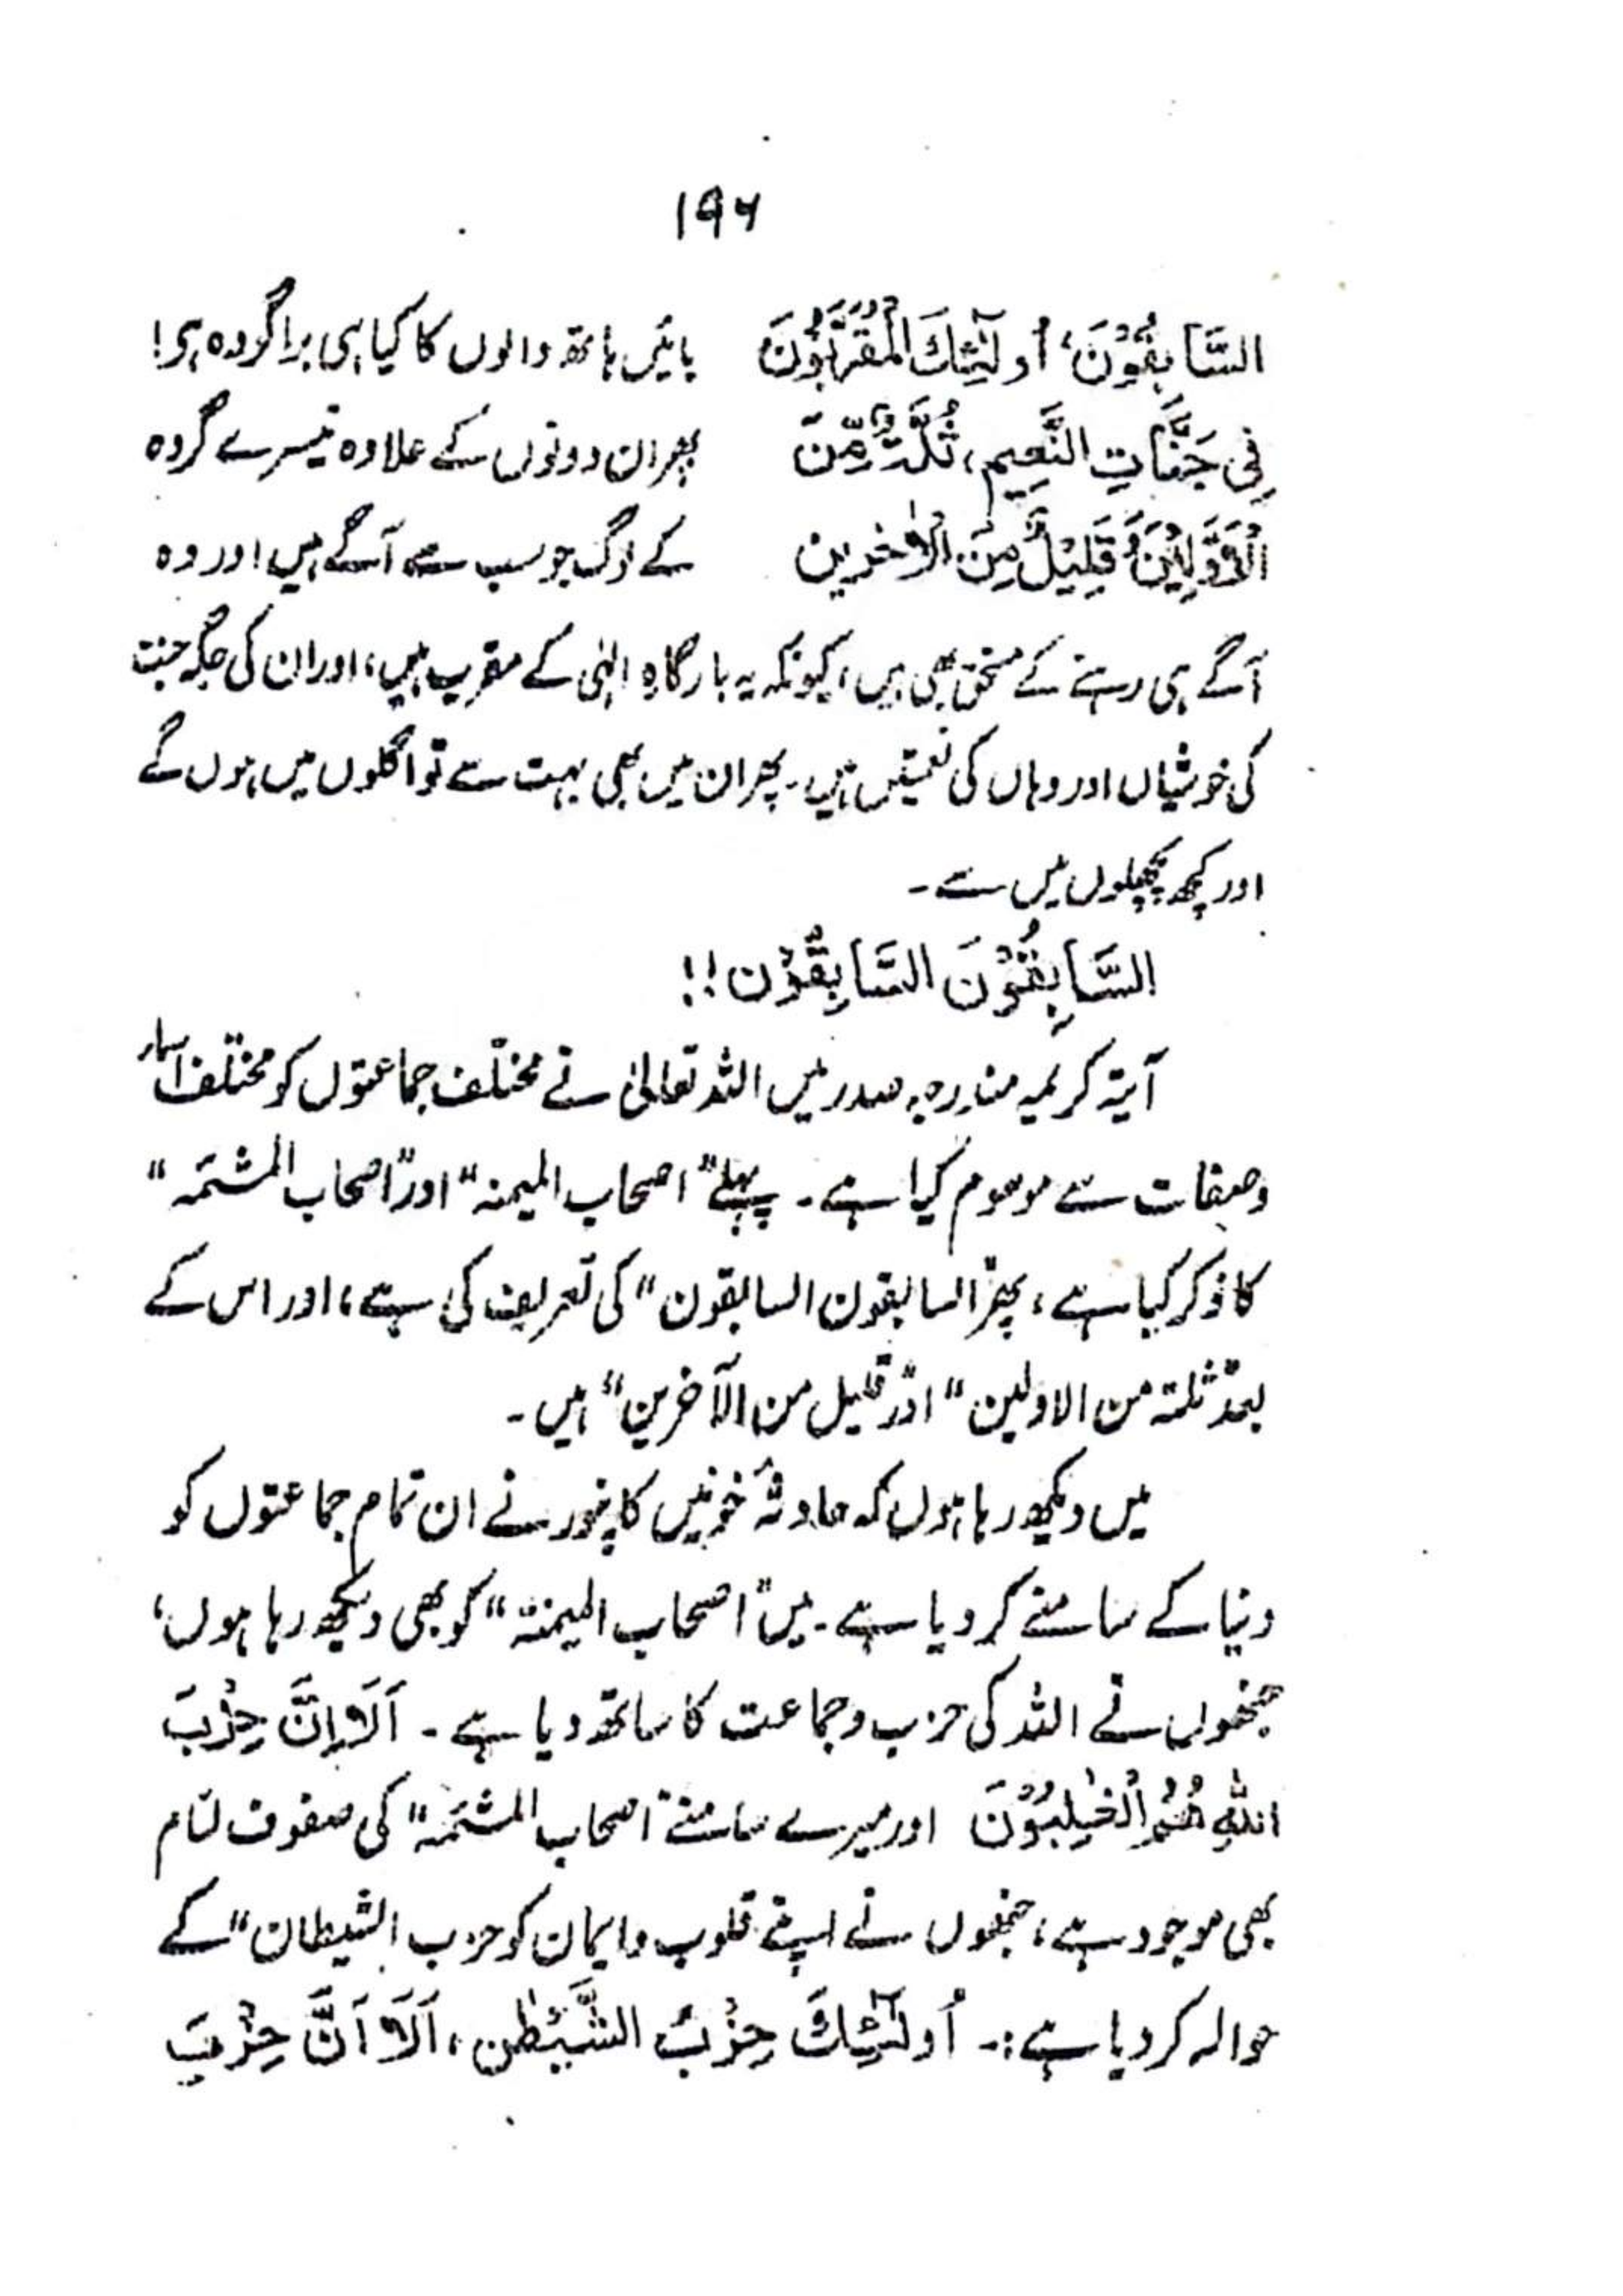 ۱۹۶
السَّابِقُوْنَ، أُولٰٓئِكَ الْمُقَرَّبُوْنَ بائیں ہاتھ والوں کا کیا ہی برا گروہ ہی!
فِي جَنَّاتِ النَّعِيمِ، ثُلَّةٌ مِّنَ پھر ان دونوں کے علاوہ تیسرے گروہ
الْاَوَّلِيْنَ وَقَلِيْلٌ مِنَ الْاٰخِرِين کے لوگ جو سب سے آگے ہیں اور وہ
آگے ہی رہنے کے مستحق بھی ہیں، کیونکہ یہ بارگاہِ الٰہی کے مقرب ہیں، اور ان کی جگہ جنت
کی خوشیاں اور وہاں کی نعمتیں ہیں۔ پھر ان میں بھی بہت سے تو اگلوں میں ہوں گے
اور کچھ پچھلوں میں سے۔
السَّابِقُوْنَ السَّابِقُوْن!!
آیۃ کریمہ مندرجہ صدر میں اللہ تعالیٰ نے مختلف جماعتوں کو مختلف اسمار
وصفات سے موسوم کیا ہے۔ پہلے "اصحاب المیمنہ" اور "اصحاب المشئمہ"
کا ذکر کیا ہے، پھر "السابقون السابقون" کی تعریف کی ہے، اور اس کے
بعد "ثلۃ من الاولین" اور "قلیل من الآخرین" ہیں۔
میں دیکھ رہا ہوں کہ حادثۂ خونیں کانپور نے ان تمام جماعتوں کو
دنیا کے سامنے کر دیا ہے۔ میں "اصحاب المیمنۃ" کو بھی دیکھ رہا ہوں،
جنھوں نے اللہ کی حزب وجماعت کا ساتھ دیا ہے۔ اَلَا اِنَّ حِزْبَ
اللّٰهِ هُمُ الْغٰلِبُوْنَ اور میرے سامنے "اصحاب المشئمہ" کی صفوف لئام
بھی موجود ہے، جنھوں نے اپنے قلوب وایمان کو حزب الشیطان" کے
حوالہ کر دیا ہے:۔ اُولٰٓئِكَ حِزْبُ الشَّيْطٰن، اَلَا اَنَّ حِزْبَ